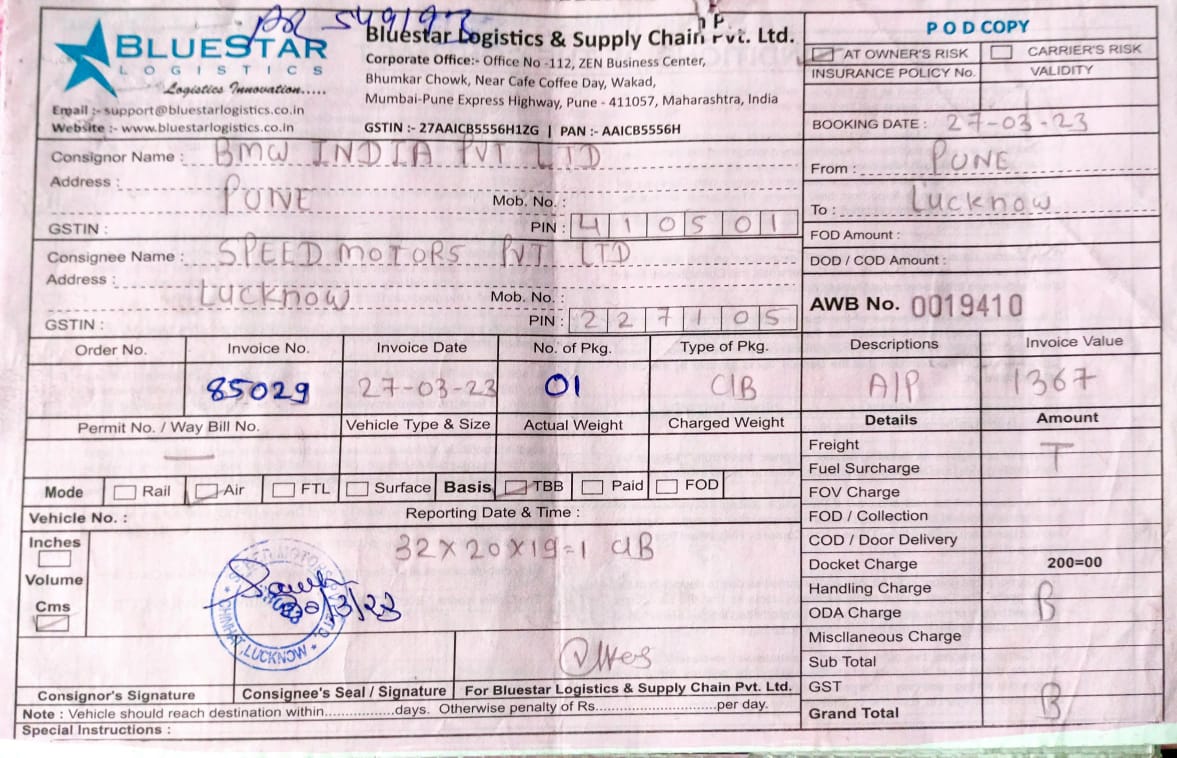 BLUESTAR
LOGISTICS
Logistics Innovation.....
Email :- support@bluestarlogistics.co.in
Website :- www.bluestarlogistics.co.in
Bluestar Logistics & Supply Chain Pvt. Ltd.
Corporate Office:- Office No -112, ZEN Business Center,
Bhumkar Chowk, Near Cafe Coffee Day, Wakad,
Mumbai-Pune Express Highway, Pune - 411057, Maharashtra, India
GSTIN :- 27AAICB5556H1ZG | PAN :- AAICB5556H
POD COPY
AT OWNER'S RISK CARRIER'S RISK
INSURANCE POLICY No. VALIDITY
BOOKING DATE : 27-03-23
From : PUNE
To : Lucknow
FOD Amount :
DOD / COD Amount :
AWB No. 0019410
Consignor Name : BMW INDIA PVT LTD
Address : PUNE
Mob. No. :
GSTIN : PIN : 410501
Consignee Name : SPEED MOTORS PVT LTD
Address : Lucknow
Mob. No. :
GSTIN : PIN : 227105
Order No. Invoice No. Invoice Date No. of Pkg. Type of Pkg. Descriptions Invoice Value
85029 27-03-23 01 C/B A/P 1367
Permit No. / Way Bill No. Vehicle Type & Size Actual Weight Charged Weight Details Amount
—
Mode Rail Air FTL Surface Basis TBB Paid FOD
Vehicle No. : Reporting Date & Time :
Inches
Volume
Cms
32 x 20 x 19 = 1 C/B
30/3/23
CHINHAT, LUCKNOW
Freight T
Fuel Surcharge
FOV Charge
FOD / Collection
COD / Door Delivery
Docket Charge 200=00
Handling Charge
ODA Charge B
Miscllaneous Charge
Sub Total
GST
Grand Total B
Consignor's Signature Consignee's Seal / Signature For Bluestar Logistics & Supply Chain Pvt. Ltd.
Note : Vehicle should reach destination within.................days. Otherwise penalty of Rs.............................per day.
Special Instructions :